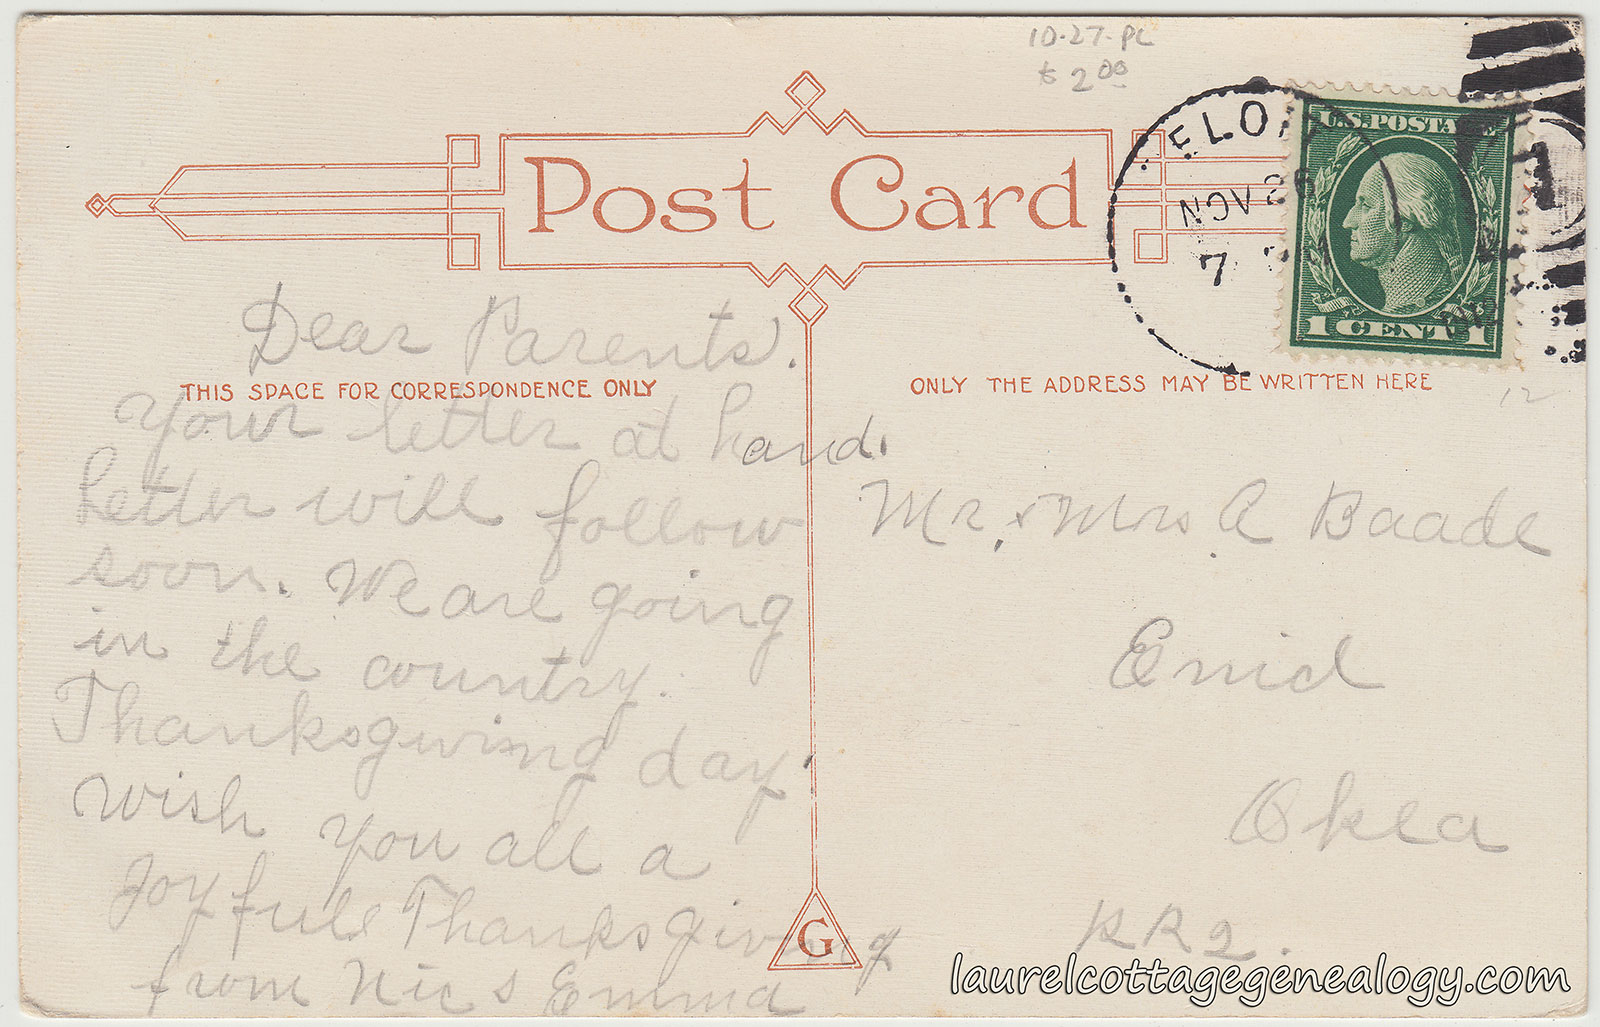 10-27-PC
$ 2.00
NOV 26
7
U.S. POSTAGE
1 CENT 1
Post Card
Dear Parents.
THIS SPACE FOR CORRESPONDENCE ONLY
Your letter at hand.
Letter will follow
soon. We are going
in the country.
Thanksgiving day.
Wish you all a
Joyfull Thanksgiving
from Nic & Emma
G
ONLY THE ADDRESS MAY BE WRITTEN HERE
12
Mr. & Mrs. A Baade
Enid
Okla
RR2.
laurelcottagegenealogy.com